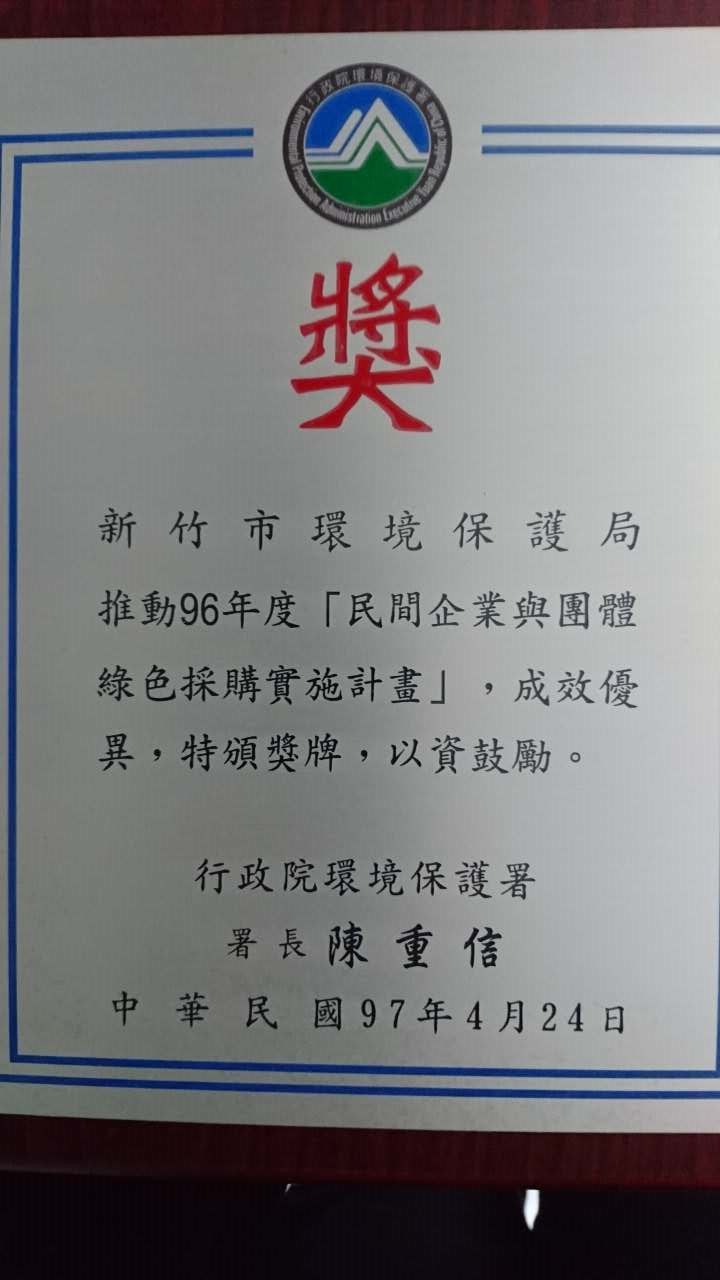 行政院環境保護署
Environmental Protection Administration Executive Yuan Republic of China
獎
新竹市環境保護局
推動96年度「民間企業與團體
綠色採購實施計畫」，成效優
異，特頒獎牌，以資鼓勵。
行政院環境保護署
署長 陳重信
中華民國97年4月24日